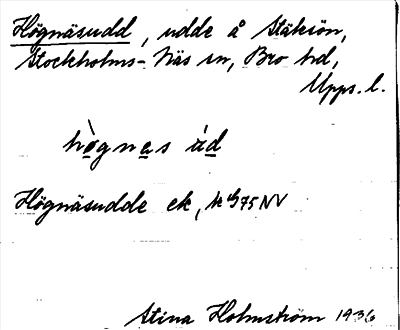 Högnäsudd, udde å Stäksön,
Stockholms-Näs sn, Bro hd,
Upps. l.
hògnas úd
Högnäsudde ek, 75 NV
Stina Holmström 1936